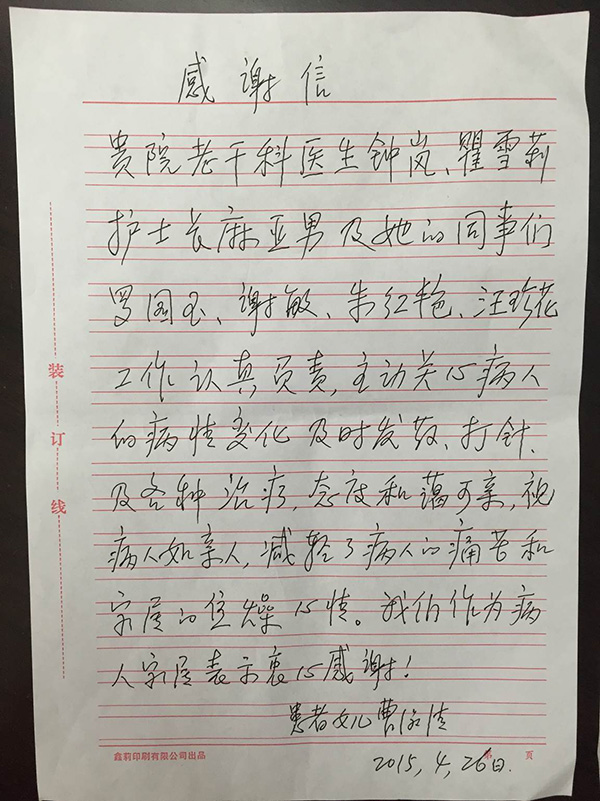 感谢信
贵院老干科医生钟岚、瞿雪莉
护士长麻亚男及她的同事们
罗国玉、谢敏、朱红艳、汪珍花
工作认真负责,主动关心病人
的病情变化及时发药、打针、
及各种治疗,态度和蔼可亲,视
病人如亲人,减轻了病人的痛苦和
家属的焦燥心情。我们作为病
人家属表示衷心感谢!
患者女儿曹
2015,4,26日.
装订线
鑫莉印刷有限公司出品
第 页